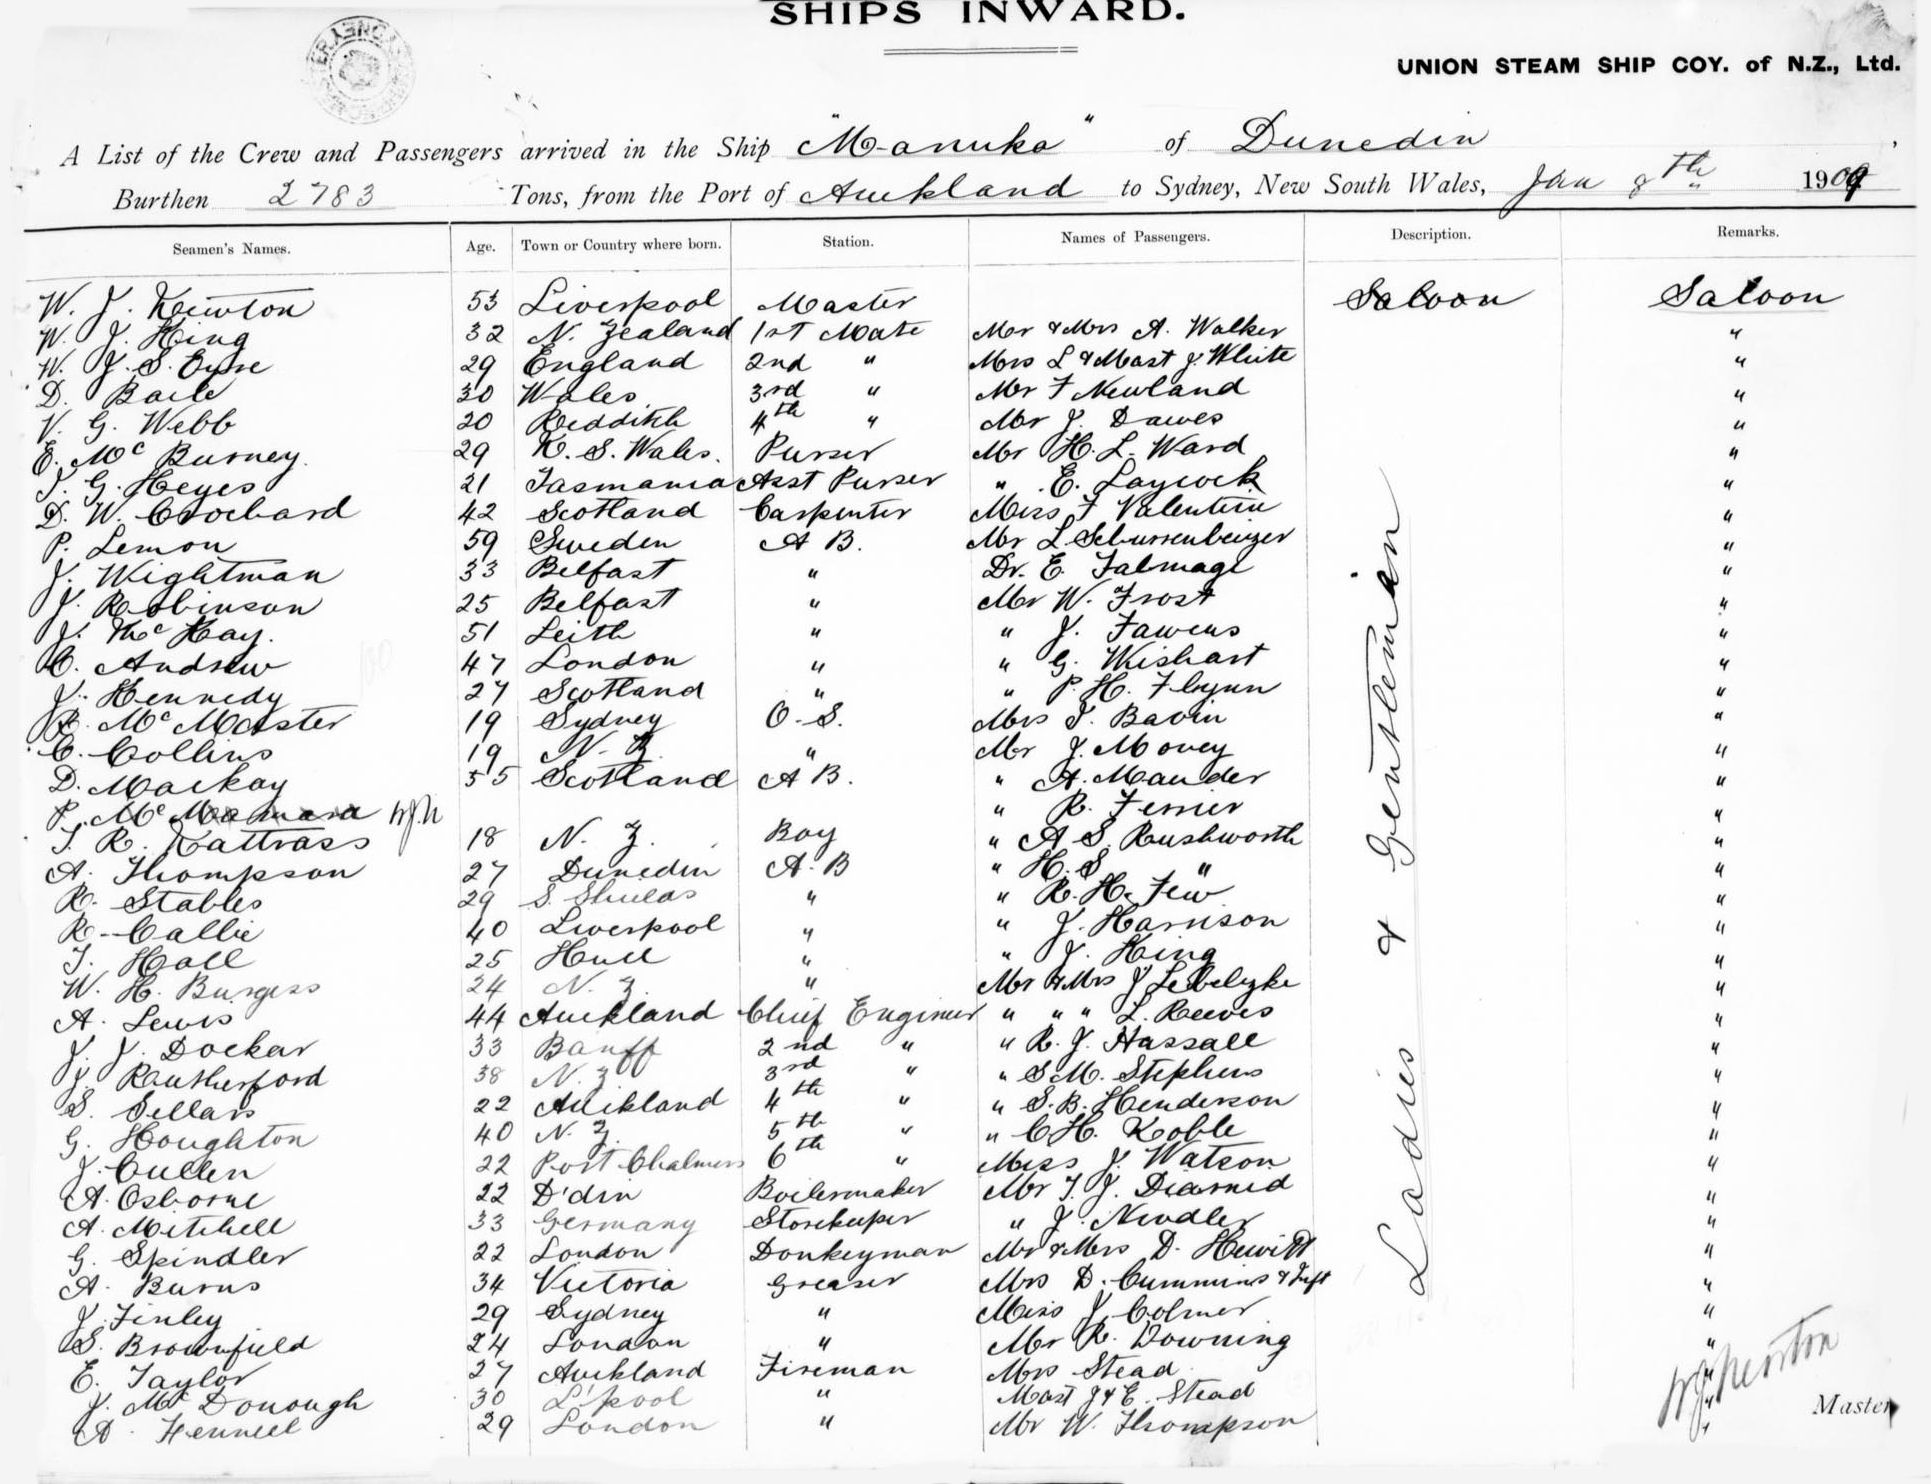 SHIPS INWARD.
UNION STEAM SHIP COY. of N.Z., Ltd.
A List of the Crew and Passengers arrived in the Ship "Manuka" of Dunedin,
Burthen 2783 Tons, from the Port of Auckland to Sydney, New South Wales, Jan 8th 1909
Seamen's Names. Age. Town or Country where born. Station. Names of Passengers. Description. Remarks.
W. J. Newton 53 Liverpool Master Saloon Saloon
W. J. King 32 N. Zealand 1st Mate Mr & Mrs A. Walker "
W. J. S. Eyre 29 England 2nd " Mrs L & Mast J. White "
D. Baile 30 Wales 3rd " Mr F Newland "
V. G. Webb 20 Redditch 4th " Mr J. Dawes "
E. Mc Burney. 29 N. S. Wales. Purser Mr H. L. Ward "
T. G. Heyes 21 Tasmania Asst Purser " E. Laycock "
D. W. Crochard 42 Scotland Carpenter Miss F Valentine "
P. Lemon 59 Sweden A B. Mr L "
J. Wightman 33 Belfast " Dr. E. Talmage "
J. Robinson 25 Belfast " Mr W. Frost "
J. McKay. 51 Leith " " J. Fawcus "
C. Andrew 47 London " " G. Wishart "
J. Kennedy 27 Scotland " " P. H. Flynn "
R. McMaster 19 Sydney O. S. Mrs T. Bavin "
C. Collins 19 N. Z. " Mr J. Movey "
D. Mackay 55 Scotland A B. " A. Maunder "
P. McNamara WJN " R. Ferrier "
T. R. Nattrass 18 N. Z. Boy " A S. Rushworth "
A. Thompson 27 Dunedin A. B " H. S " "
R. Stables 29 S. Shields " " R. H. Few "
R. Callie 40 Liverpool " " J. Harrison "
T. Hall 25 Hull " " J. King "
W. H. Burgess 24 N. Z. " Mr & Mrs J "
A. Lewis 44 Auckland Chief Engineer " " " L. Reeves "
J. J. Dockar 33 Banff 2nd " " R. J. Hassall "
J. Rutherford 38 N. Z 3rd " " S M. Stephens "
S. Sellars 22 Auckland 4th " " S. B. Henderson "
G. Houghton 40 N. Z. 5th " " C H. Noble "
J. Cullen 22 Port Chalmers 6th " Miss J. Watson "
A. Osborne 22 D'din Boilermaker Mr T. J. Diarmid "
A. Mitchell 33 Germany Storekeeper " J. Nwdler "
G. Spindler 22 London Donkeyman Mr & Mrs D. Hewitt "
A. Burns 34 Victoria Greaser Mrs D. Cummins & Inft "
J. Finley 29 Sydney " Miss J. Colmer "
S. Brownfield 24 London " Mr R. Downing "
E. Taylor 27 Auckland Fireman Mrs Stead "
J. Mc Donough 30 L'pool " Mast J & E. Stead "
A. Fennell 29 London " Mr W. Thompson "
Ladies & Gentleman
WJ Newton
Master